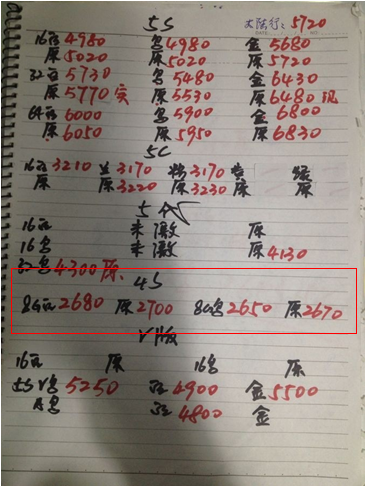 5S 大陆行:5720
DATE NO
16白4980 黑4980 金5680
原5020 原5020 原5720
32白5730 黑5480 金6430
原5770实 原5530 原6480沉
64白6000 黑5900 金6800
原6050 原5950 原6830
5C
16白3210 兰3170 粉3170 黄 绿
原 原3220 原3230 原 原
5代
16白 未激 原
16黑 未激 原4130
4300原
4S
8G白2680 原2700 8G黑2650 原2670
V版
16白 原 16黑 原
5S V黑5250 白4900 金5500
4800 金